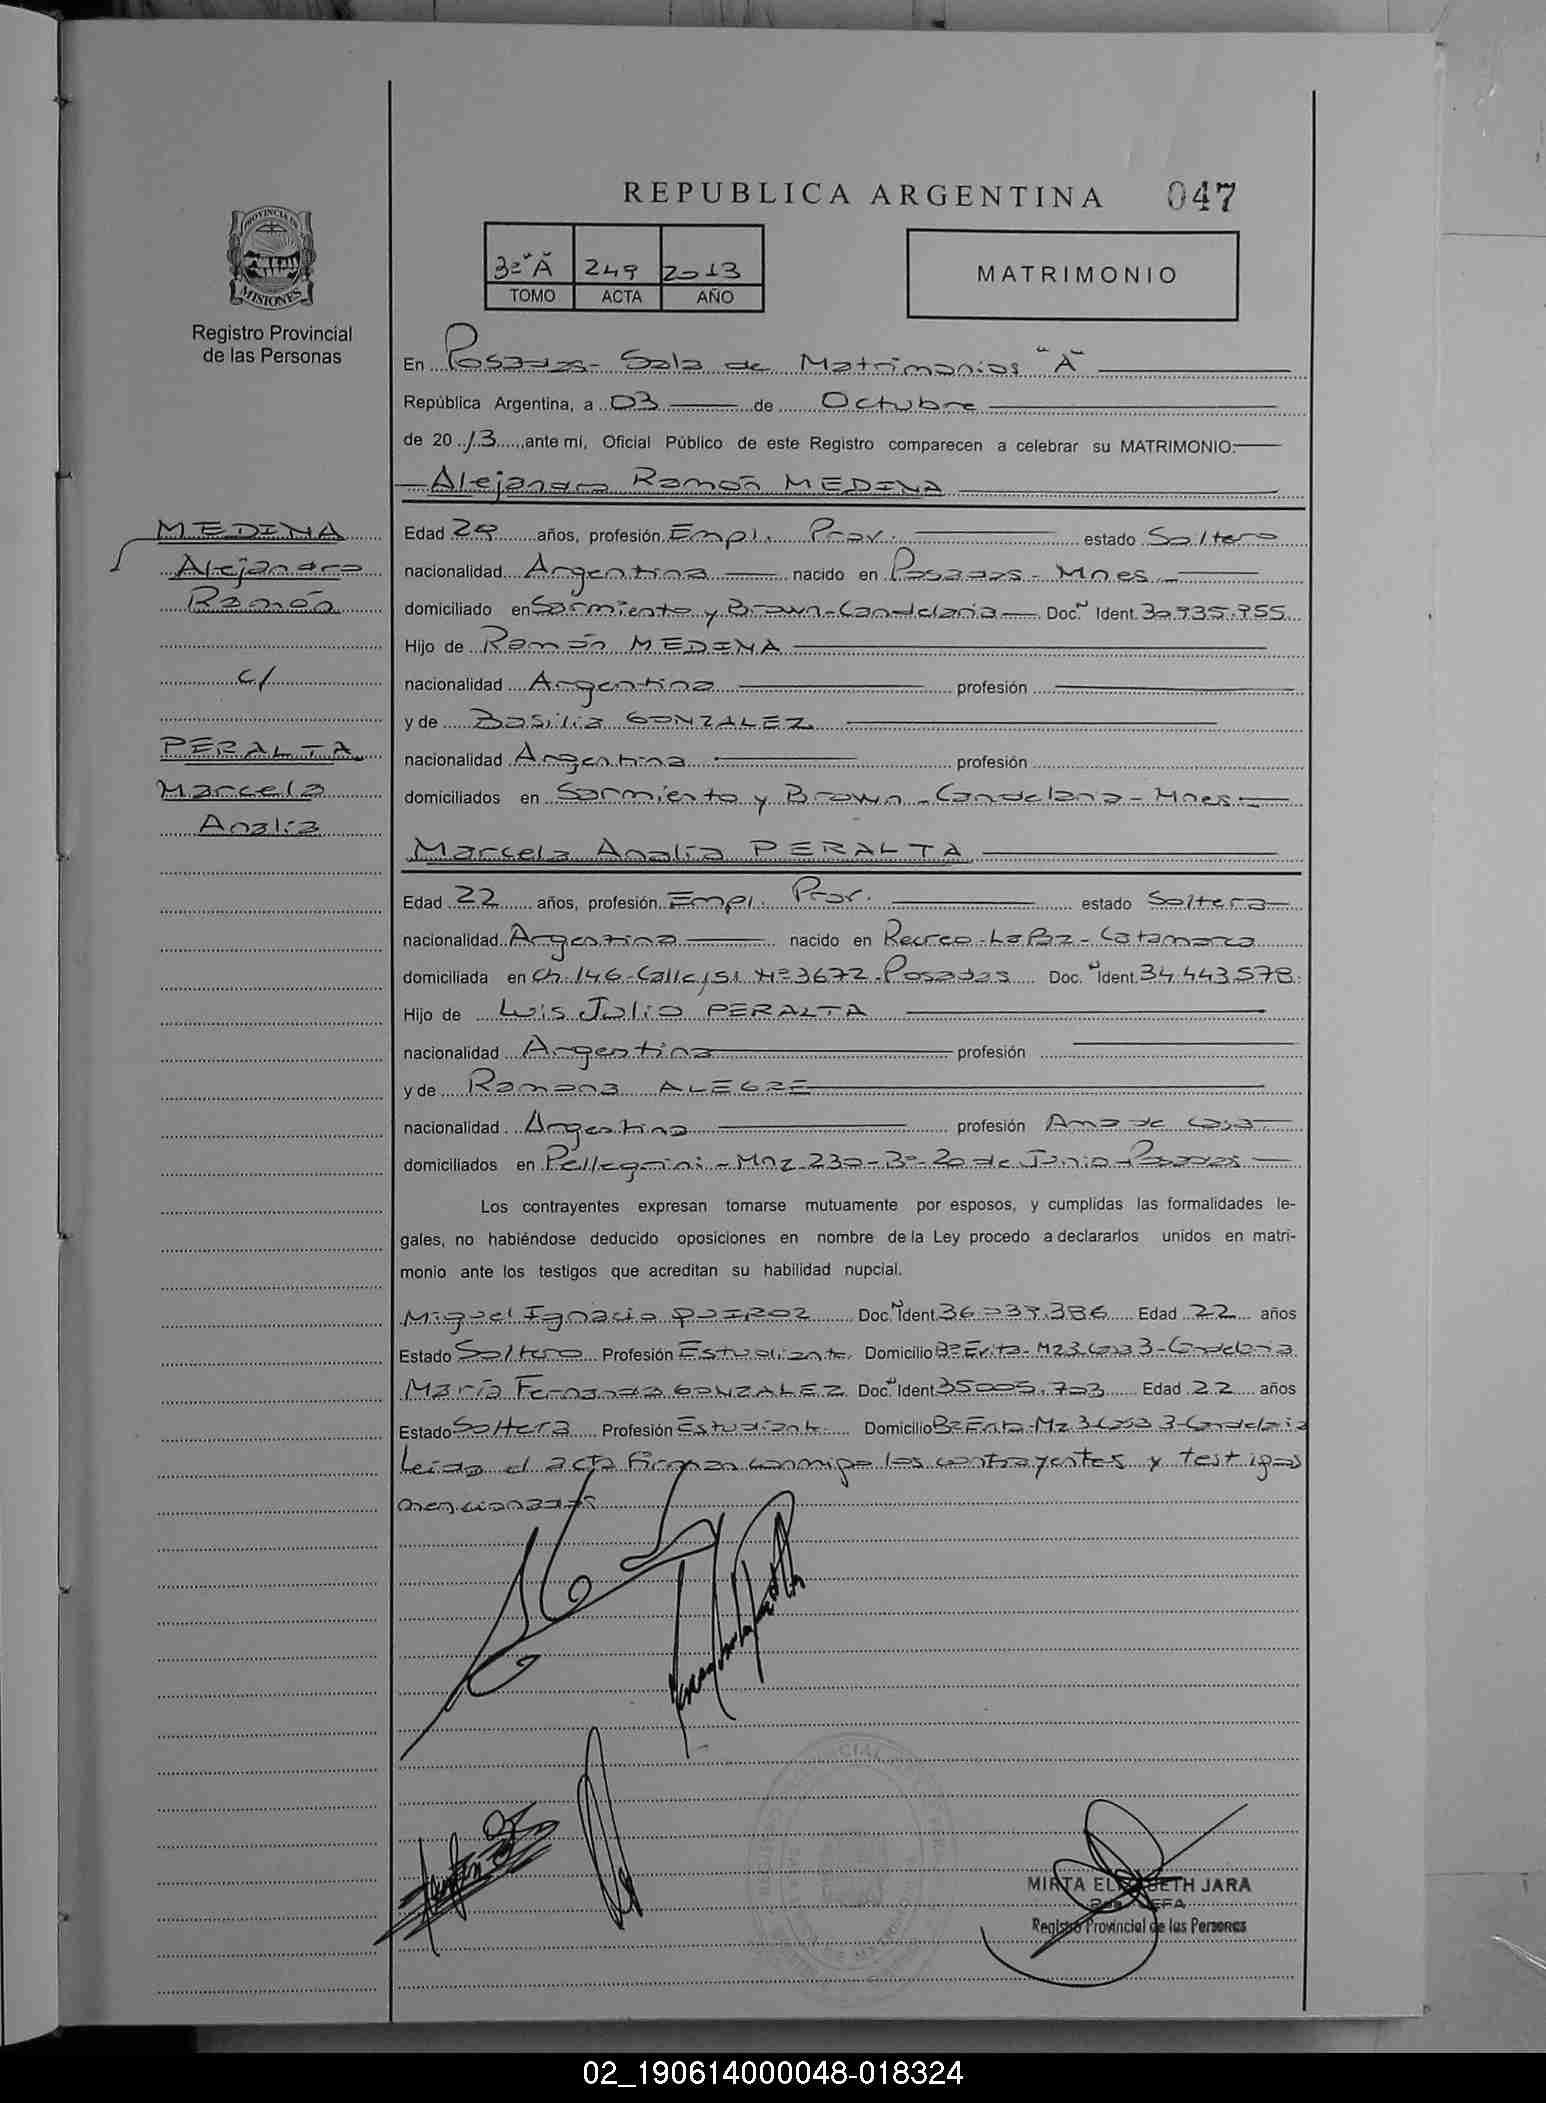 REPUBLICA ARGENTINA 047
PROVINCIA DE
MISIONES
Registro Provincial
de las Personas
3º "A" 249 2013
TOMO ACTA AÑO
MATRIMONIO
En Posadas - Sala de Matrimonios "A"
República Argentina, a 03 de Octubre
de 2013, ante mí, Oficial Público de este Registro comparecen a celebrar su MATRIMONIO:
Alejandro Ramón MEDINA
MEDINA
Alejandro
Ramón
c/
PERALTA
Marcela
Analía
Edad 29 años, profesión Empl. Priv. estado Soltero
nacionalidad Argentina nacido en Posadas - Mnes.
domiciliado en Sarmiento y Brown - Candelaria Doc. N Ident. 30.935.955
Hijo de Ramón MEDINA
nacionalidad Argentina profesión
y de Basilia GONZALEZ
nacionalidad Argentina profesión
domiciliados en Sarmiento y Brown - Candelaria - Mnes
Marcela Analía PERALTA
Edad 22 años, profesión Empl. Priv. estado Soltera
nacionalidad Argentina nacido en Recreo - La Paz - Catamarca
domiciliada en Ch. 146 - Calle 151 Nº 3672 - Posadas Doc. N Ident. 34.443.578
Hijo de Luis Julio PERALTA
nacionalidad Argentina profesión
y de Ramona ALEGRE
nacionalidad Argentina profesión Ama de casa
domiciliados en Pellegrini - Mnz 230 - Bº 20 de Junio - Posadas
Los contrayentes expresan tomarse mutuamente por esposos, y cumplidas las formalidades le-
gales, no habiéndose deducido oposiciones en nombre de la Ley procedo a declararlos unidos en matri-
monio ante los testigos que acreditan su habilidad nupcial.
Miguel Ignacio QUIROZ Doc. N Ident. 36.039.386 Edad 22 años
Estado Soltero Profesión Estudiante Domicilio Bº Evita - Mz 3 Casa 3 - Candelaria
María Fernanda GONZALEZ Doc. N Ident. 35005.703 Edad 22 años
Estado Soltera Profesión Estudiante Domicilio Bº Evita - Mz 3 Casa 3 - Candelaria
Leída el acta firman conmigo los contrayentes y testigos
mencionados
MIRTA ELIZABETH JARA
JEFA
Registro Provincial de las Personas
02_190614000048-018324